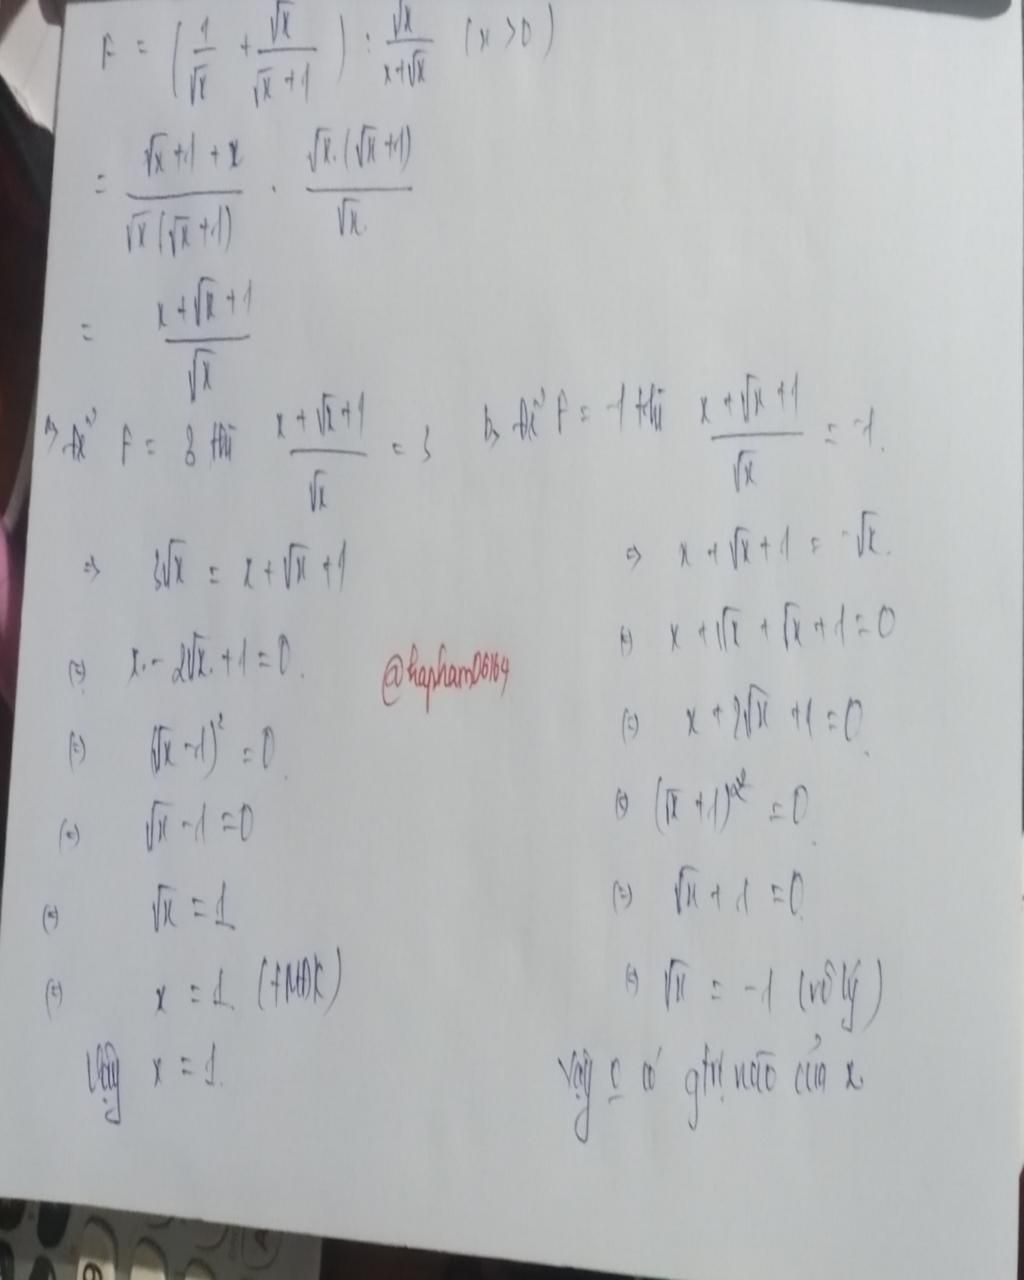 F = (1/√x + √x/(√x+1)) : √x/(x+√x) (x>0)
= (√x+1+x)/(√x(√x+1)) . (√x.(√x+1))/√x.
= (x+√x+1)/√x
Để F = 3 thì (x+√x+1)/√x = 3
=> 3√x = x+√x+1
(=) x - 2√x + 1 = 0.
(=) (√x-1)² = 0
(=) √x-1 = 0
(=) √x = 1
(=) x = 1 (TMĐK)
Vậy x = 1.
b, Để F = -1 thì (x+√x+1)/√x = -1.
=> x+√x+1 = -√x.
(=) x+√x+√x+1=0
(=) x+2√x+1=0
(=) (√x+1)² = 0
(=) √x+1 = 0
(=) √x = -1 (vô lý)
Vậy có gtrị nào của x
@hapham06164